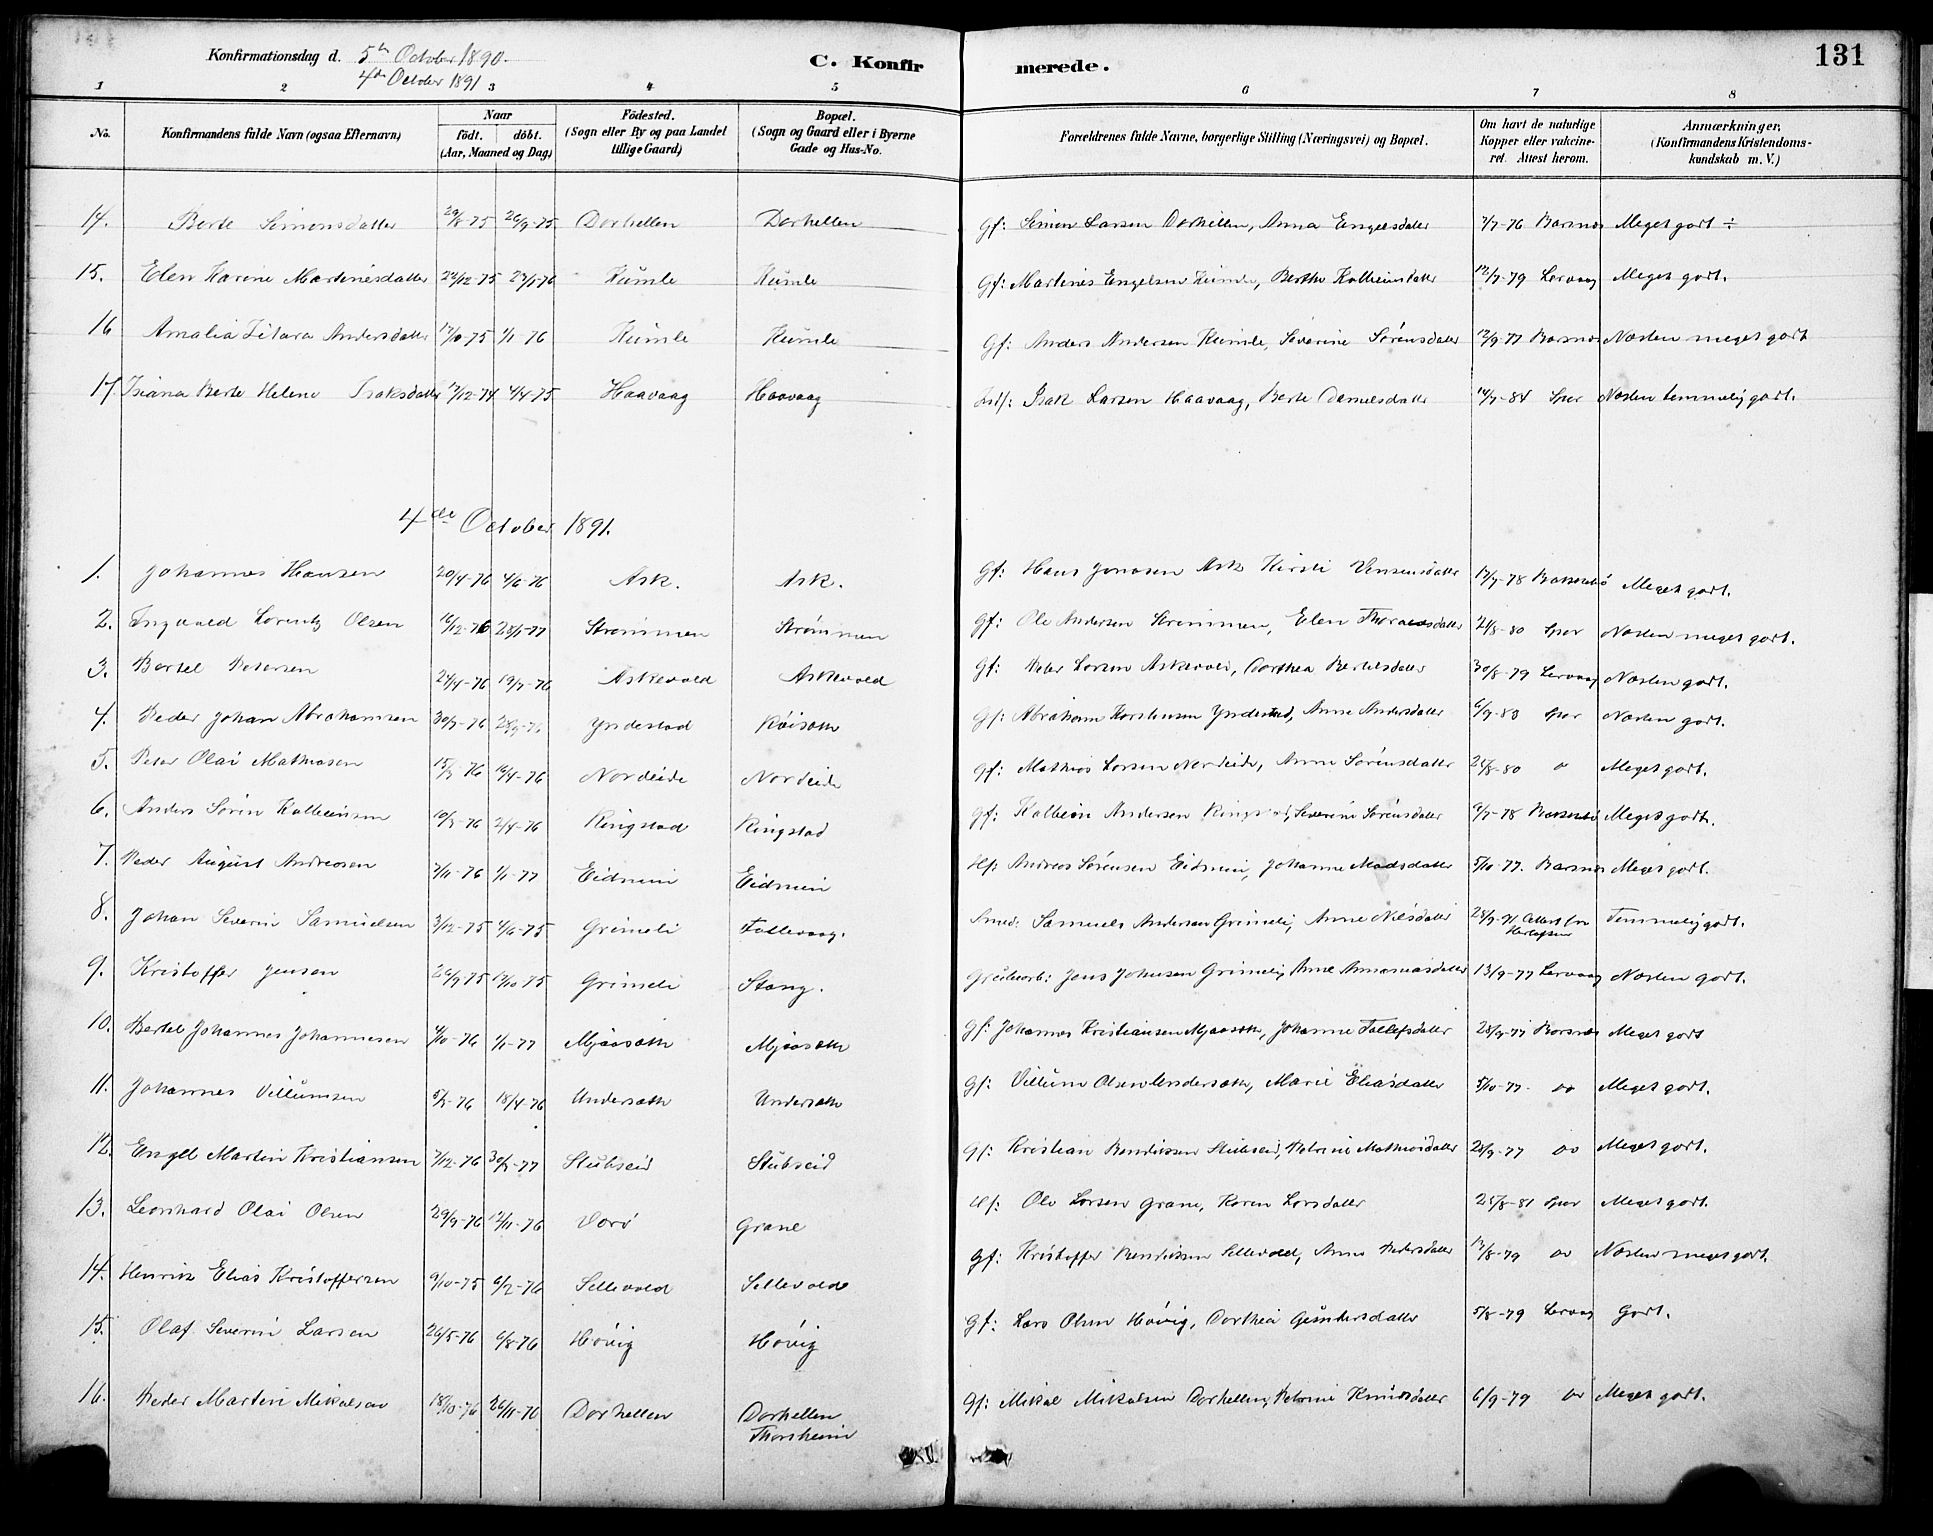 Konfirmationsdag d. 5te October 1890.
4de October 1891
C. Konfirmerede.
131
1 2 3 4 5 6 7 8
No. Konfirmandens fulde Navn (ogsaa Efternavn) Naar født. døbt. (Aar, Maaned og Dag) Fødested. (Sogn eller By og paa Landet tillige Gaard) Bopæl. (Sogn og Gaard eller i Byerne Gade og Hus-No. Forældrenes fulde Navne, borgerlige Stilling (Næringsvei) og Bopæl. Om havt de naturlige Kopper eller vakcineret. Attest herom. Anmærkninger. (Konfirmandens Kristendomskundskab m. V.)
14. Berte Simonsdatter 29/8-75 26/9-75 Dorhellen Dorhellen Gf: Simon Larsen Dorhellen, Anna Engelsdatter 7/7-76 Barsnes Meget godt ÷
15. Elen Karine Martinesdatter Humle Humle Gf: Martines Engelsen Humle, Berthe Kolbeinsdatter 12/7-79 Lervaag Meget godt.
16 Amalia Andersdatter 17/10-75 1/1-76 Humle Humle Gf: Anders Andersen Humle, Severine Sørensdatter 12/9-77 Barsnes Næsten meget godt
17. Berte Helene Isaksdatter 17/12-74 4/4-75 Haavaag Haavaag Isak Larsen Haavaag, Berte Danielsdatter 14/7-84 Spor Næsten temmelig godt.
4de October 1891.
1. Johannes Hansen 20/4-76 4/6-76 Ask. Ask. Gf: Hans Jonasen Ask Kirsti 17/7-78 Meget godt.
2. Ingvald Lorentz Olsen 16/12-76 28/1-77 Strømmen Strømmen Gf: Ole Andersen Strømmen, Elen 24/8-80 Spor Næsten meget godt.
3. Bertel Petersen 24/4-76 19/7-76 Askevold Askevold Gf: Peter Larsen Askevold, Dorthea Bertelsdatter 30/8-79 Lervaag Næsten godt.
4. Peder Johan Abrahamsen 30/7-76 Yndestad Røisæth Gf: Abraham Karstensen Yndestad, Anne Andersdatter 6/9-83 Spor Næsten godt.
5. Peter Olai Mathiasen 16/4-76 Nordeide Nordeide Gf: Mathias Larsen Nordeide, Anne Sørensdatter Meget godt.
6. Anders Sørin Kolbeinsen 10/3-76 2/4-76 Ringstad Ringstad Gf: Kolbein Andersen Severine Sørensdatter 6/7-78 Meget godt.
7. Peder August Andreasen 7/11-76 1/1-77 Eidmein Eidmein Hf: Andreas Sørensen Eidmein, Johanne Madsdatter 5/10-77. Barsnes Meget godt.
8. Johan Severin Samuelsen 3/12-75 Grimeli Follevaag. Smed. Samuels Andersen Grimeli, Anne Nilsdatter Attest fra Temmelig godt.
9. Kristoffer Jensen 26/9-75 17/10-75 Grimeli Stang. Grubearb: Jens Johnsen Grimeli, Anne Annaniasdatter 13/9-77 Lervaag Næsten godt.
10. Bertel Johannes Johannesen 4/10-76 1/1-77 Mjaasæth Mjaasæth Gf: Johannes Kristiansen Mjaasæth, Johanne Tollefsdatter 28/9-77 Barsnes Meget godt
11. Johannes Villumsen 5/3-76 18/4-76 Undersæth Undersæth Gf: Villum Olsen Undersæth, Marie Eliasdatter 5/10-77. oo Meget godt.
12. Engel Martin Kristiansen 7/12-76 Stubseid Stubseid Gf: Kristian Bendiksen Stubseid, Petrine Mathiasdatter 28/9-77 oo Meget godt.
13. Leonhard Olai Olsen 29/9-76 12/11-76 Værø Grane Ole Larsen Grane, Karen Larsdatter 25/8-81 Spor Meget godt.
14. Henrik Elias Kristoffersen 9/10-75 6/2-76 Sellevold Sellevold Gf: Kristoffer Bendiksen Sellevold, Anne Pedersdatter 13/8-79 oo Næsten meget godt.
15. Olaf Severin Larsen 26/5-76 6/8-76 Høvig Høvig Gf: Lars Olsen Høvig, Dorthea Guntersdatter 5/8-79 Lervaag Godt.
16. Peder Martin Mikalsen 18/10-76 26/11-76 Dorhellen Dorhellen Gf: Mikal Mikalsen Dorhellen, Petrine Knudsdatter 6/9-79 oo Meget godt.
Thorsheim